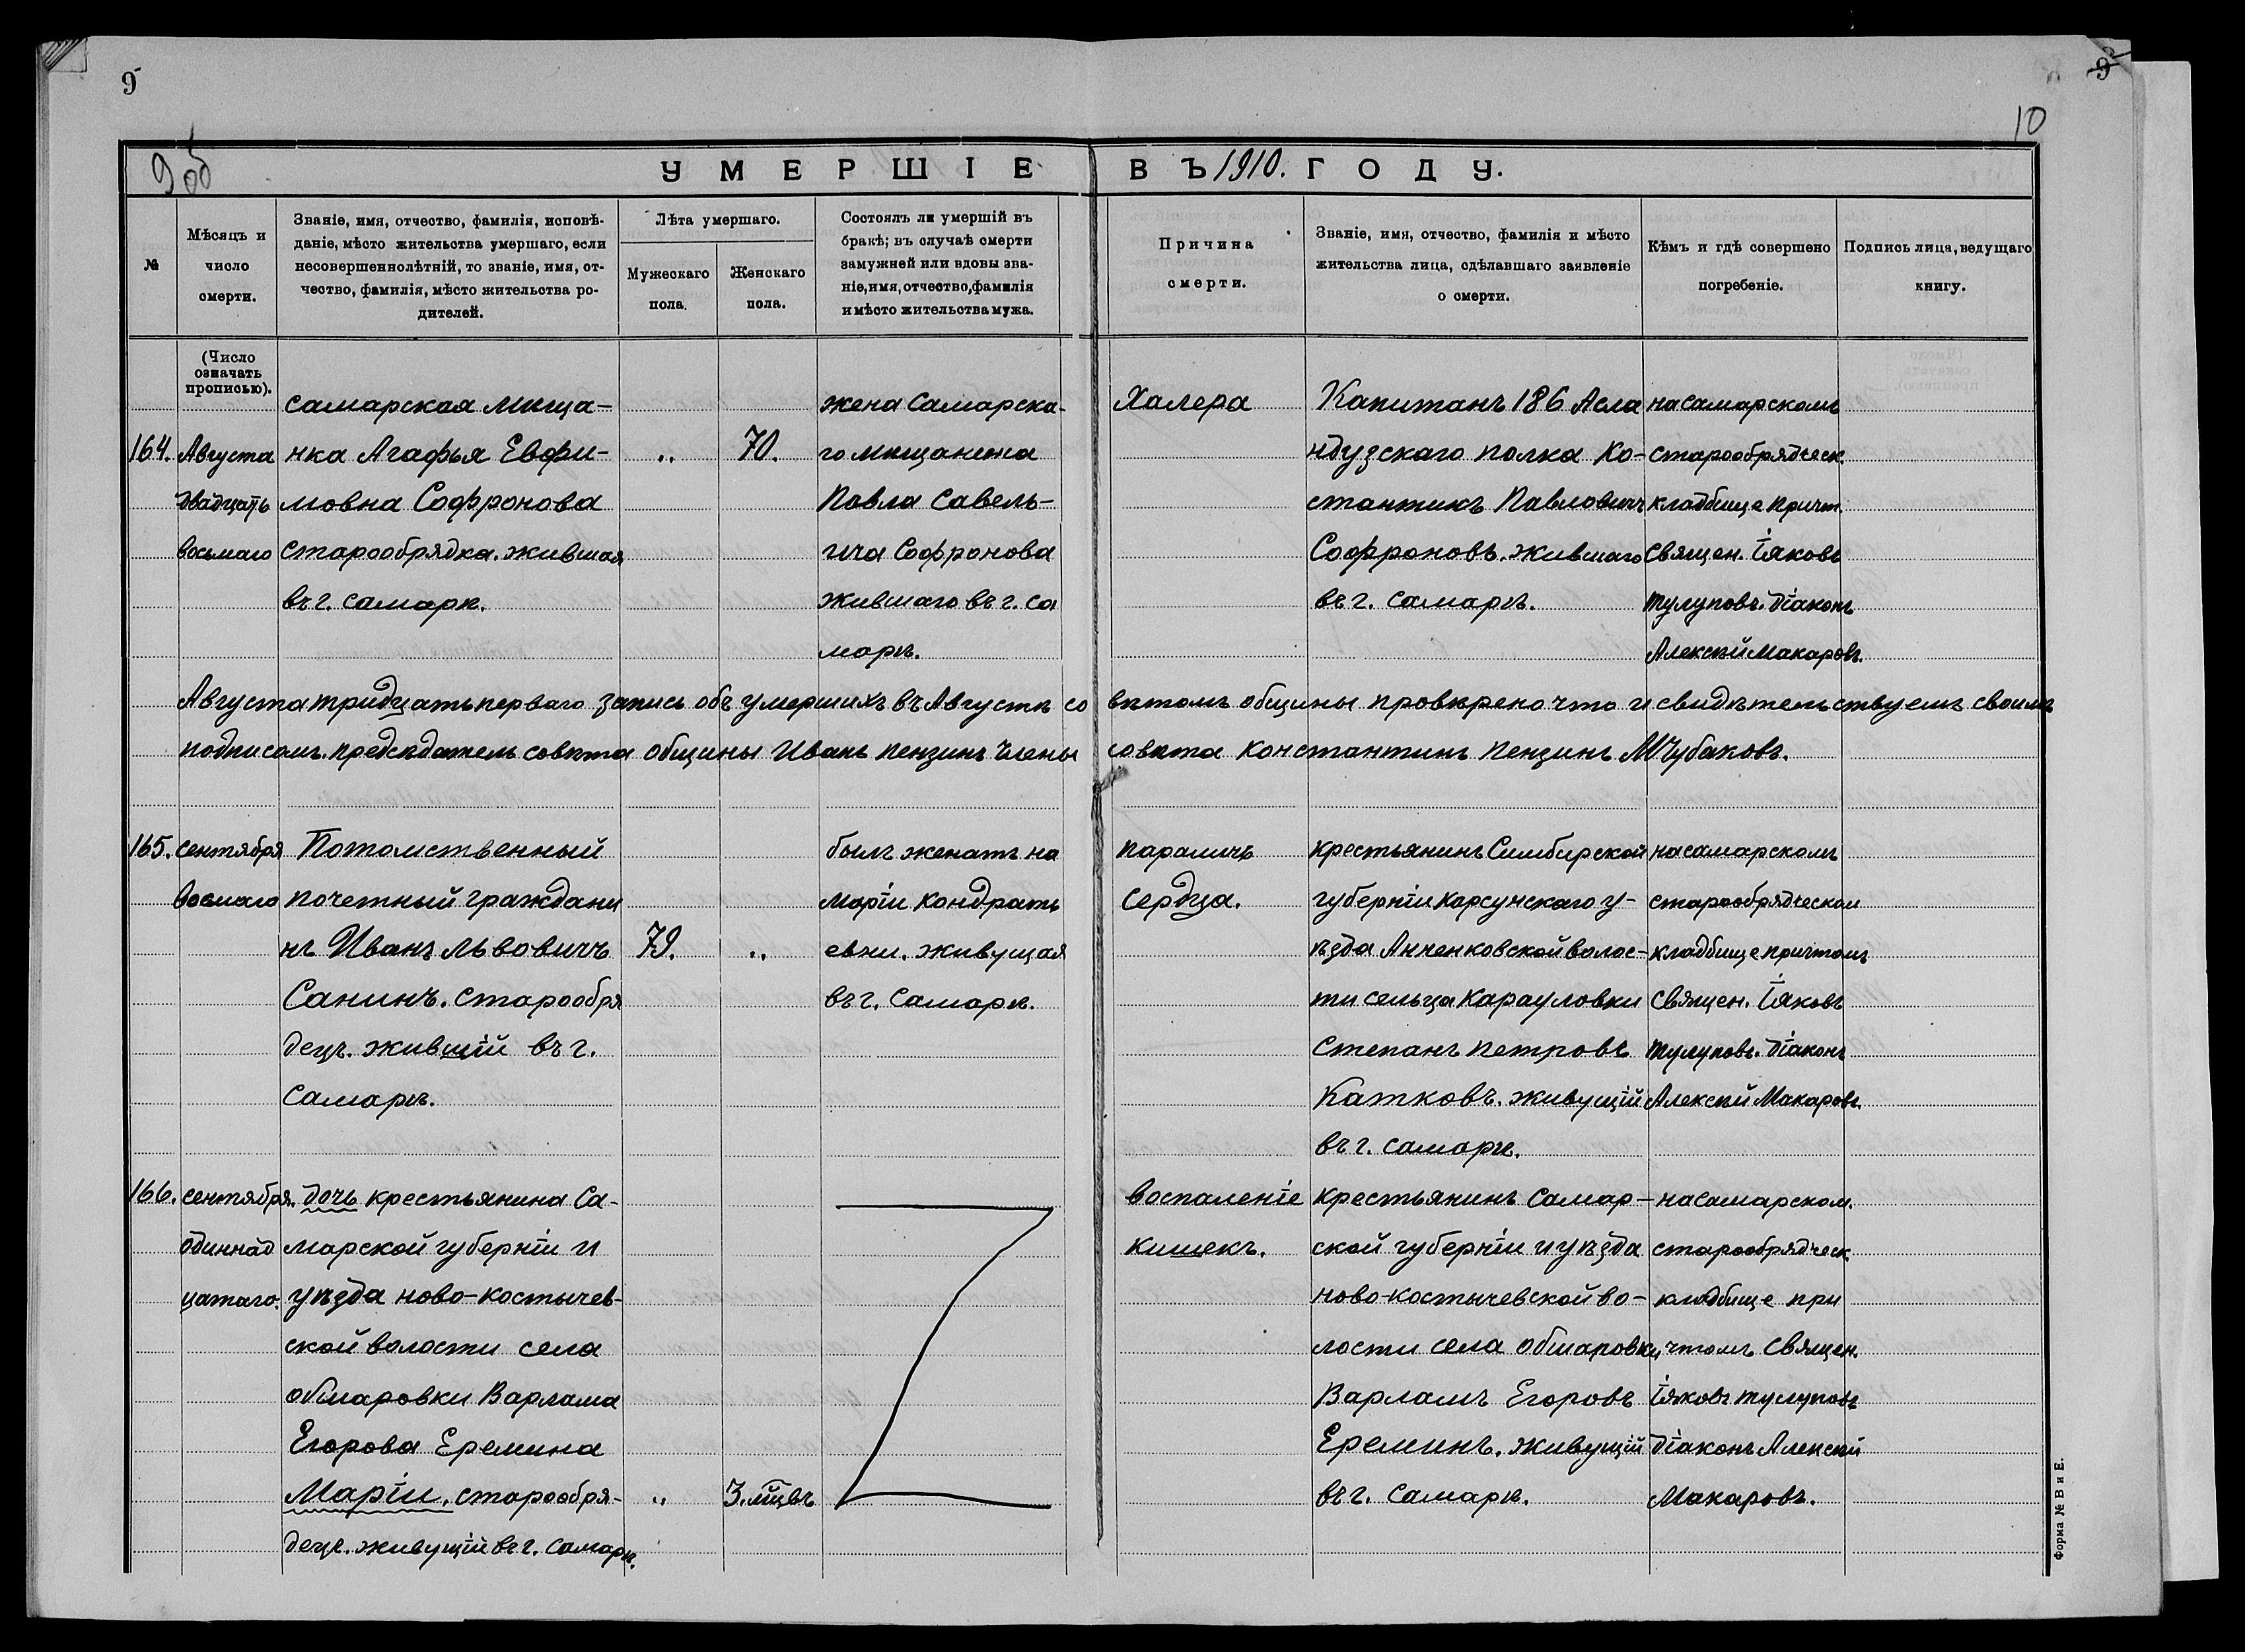 9
9
10
9 об
УМЕРШІЕ ВЪ 1910. ГОДУ.
№
Мѣсяцъ и
число
смерти.
Званіе, имя, отчество, фамилія, исповѣ-
даніе, мѣсто жительства умершаго, если
несовершеннолѣтній, то званіе, имя, от-
чество, фамилія, мѣсто жительства ро-
дителей.
Лѣта умершаго.
Мужескаго
пола.
Женскаго
пола.
Состоялъ ли умершій въ
бракѣ; въ случаѣ смерти
замужней или вдовы зва-
ніе, имя, отчество, фамилія
и мѣсто жительства мужа.
Причина
смерти.
Званіе, имя, отчество, фамилія и мѣсто
жительства лица, сдѣлавшаго заявленіе
о смерти.
Кѣмъ и гдѣ совершено
погребеніе.
Подпись лица, ведущаго
книгу.
(Число
означать
прописью).
164.
Августа
двадцать
восьмаго
самарская мѣща-
нка Агафья Евфи-
мовна Софронова
старообрядка. жившая
въ г. самарѣ.
„
70.
жена Самарска-
го мѣщанина
Павла Савель-
ича Софронова
жившаго въ г. Са
марѣ.
Халера
Капитанъ 186 Асла
ндузскаго полка Ко-
стантинъ Павловичъ
Софроновъ. жившаго
въ г. самарѣ.
на самарскомъ
старообрядческ.
кладбище причт.
Священ. Іяковъ
тулуповъ. Діаконъ
Алексѣй Макаровъ.
Августа тридцать перваго запись объ умершихъ въ Августѣ со вѣтомъ общины провѣрено что и свидѣтельствуемъ своимъ
подписомъ. предсѣдатель совѣта общины Иванъ Пензинъ Члены совѣта Константинъ Пензинъ М Чубаковъ.
165.
сентября
восмаго
Потомственный
почетный граждани
нъ Иванъ Львовичъ
Санинъ. старообря
децъ. жившій въ г.
Самарѣ.
79.
„
былъ женатъ на
Маріи Кондрать
евни. живущая
въ г. Самарѣ.
параличъ
сердца.
крестьянинъ Симбирской
губерніи Карсунскаго у-
ѣзда Анненковской волос-
ти сельца Карауловки
Степанъ Петровъ
Катковъ. живущій
въ г. самарѣ.
на самарскомъ
старообрядческом
кладбище причтомъ
Священ. Іяковъ
тулуповъ. Діаконъ
Алексѣй Макаровъ.
166.
сентября.
одиннад
цатаго.
дочь крестьянина Са-
марской губерніи и
уѣзда ново-костычев-
ской волости села
обшаровки Варлама
Егорова Еремина
Маріи. старообря-
децъ. живущій въ г. Самарѣ.
„
3. мцвъ
воспаленіе
кишекъ.
крестьянинъ Самар-
ской губерніи и уѣзда
ново-костычевской во-
лости села обшаровки
Варламъ Егоровъ
Ереминъ. живущій
въ г. Самарѣ.
на самарском.
старообрядческ.
кладбище при
чтомъ Священ.
Іяковъ тулуповъ
Діаконъ Алексѣй
Макаровъ.
Форма № В и Е.